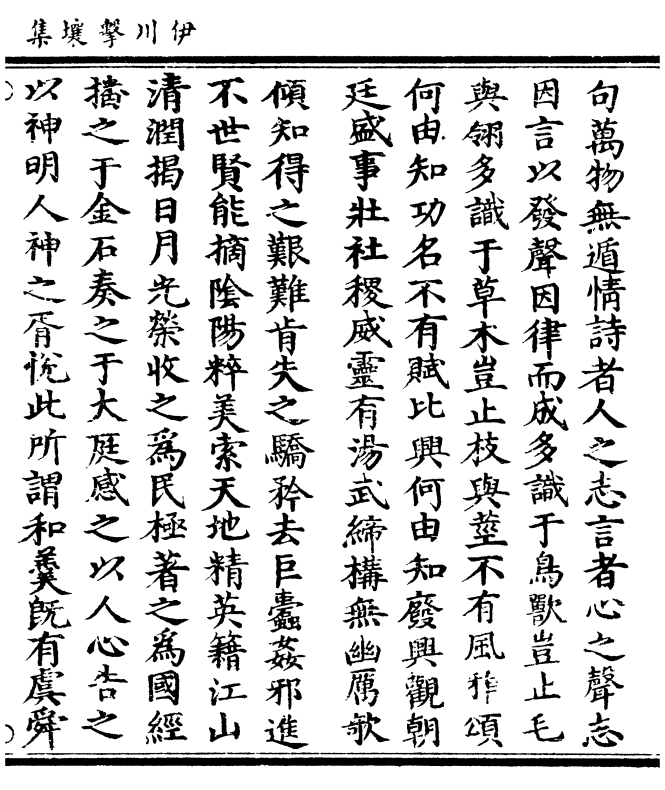 伊川擊壤集
句萬物無遁情詩者人之志言者心之聲志
因言以發聲因律而成多識于鳥獸豈止毛
與翎多識于草木豈止枝與莖不有風雅頌
何由知功名不有賦比興何由知廢興觀朝
廷盛事壯社稷威靈有湯武締構無幽厲欹
傾知得之艱難肯失之驕矜去巨蠹姦邪進
不世賢能摘陰陽粹美索天地精英籍江山
清潤揭日月光榮收之為民極著之為國經
播之于金石奏之于大庭感之以人心告之
以神明人神之胥悅此所謂和羹既有虞舜